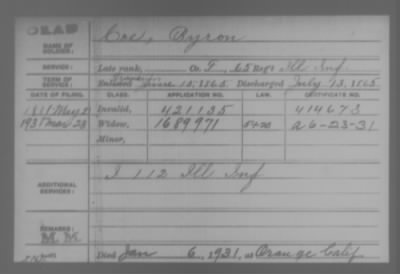 DEAD
NAME OF SOLDIER: Coe, Byron
SERVICE: Late rank, Co. I, 65 Reg't Ill Inf.
TERM OF SERVICE: Enlisted June 15, 1865. Discharged July 13, 1865.
DATE OF FILING. CLASS. APPLICATION NO. LAW. CERTIFICATE NO.
May Invalid, 421135 414673
1931 Mar 23 Widow, 1689971 a 6-23-31
Minor,
ADDITIONAL SERVICES: I 112 Ill Inf
REMARKS:
Died Jan 6, 1931, at Orange Calif.